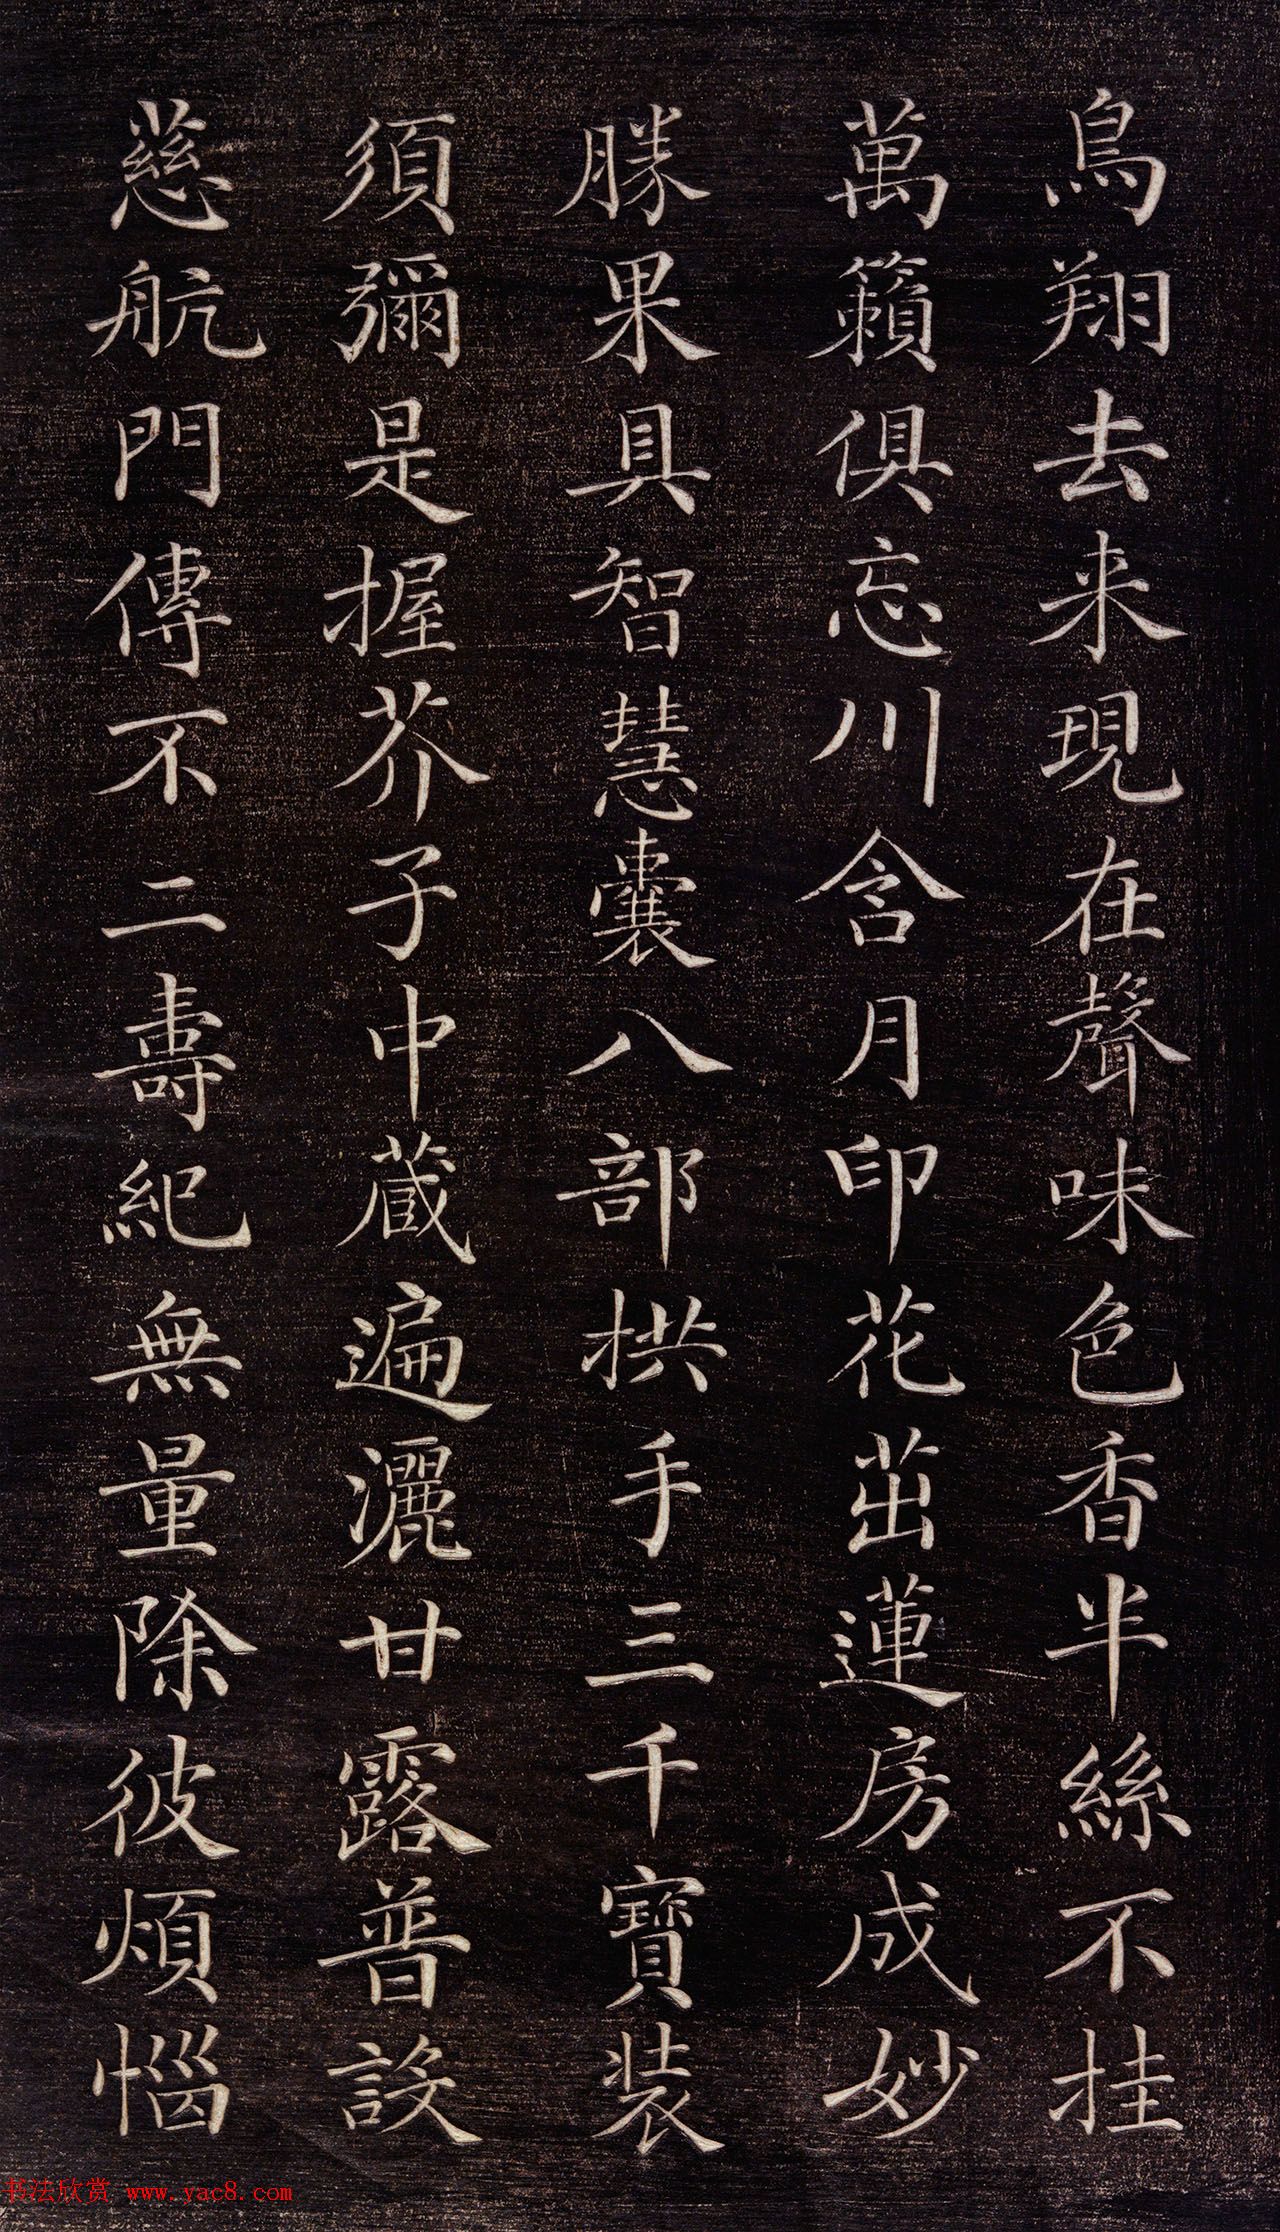 鳥翔去来現在聲味色香半絲不挂
萬籟俱忘川含月印花茁蓮房成妙
勝果具智慧囊八部拱手三千寶裝
須彌是握芥子中蔵遍灑甘露普設
慈航門傳不二壽紀無量除彼煩惱
书法欣赏 www.yac8.com